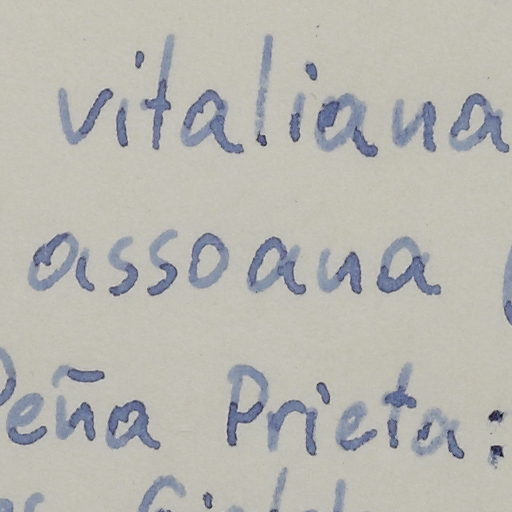 vitaliana
assoana (
Peña Prieta: